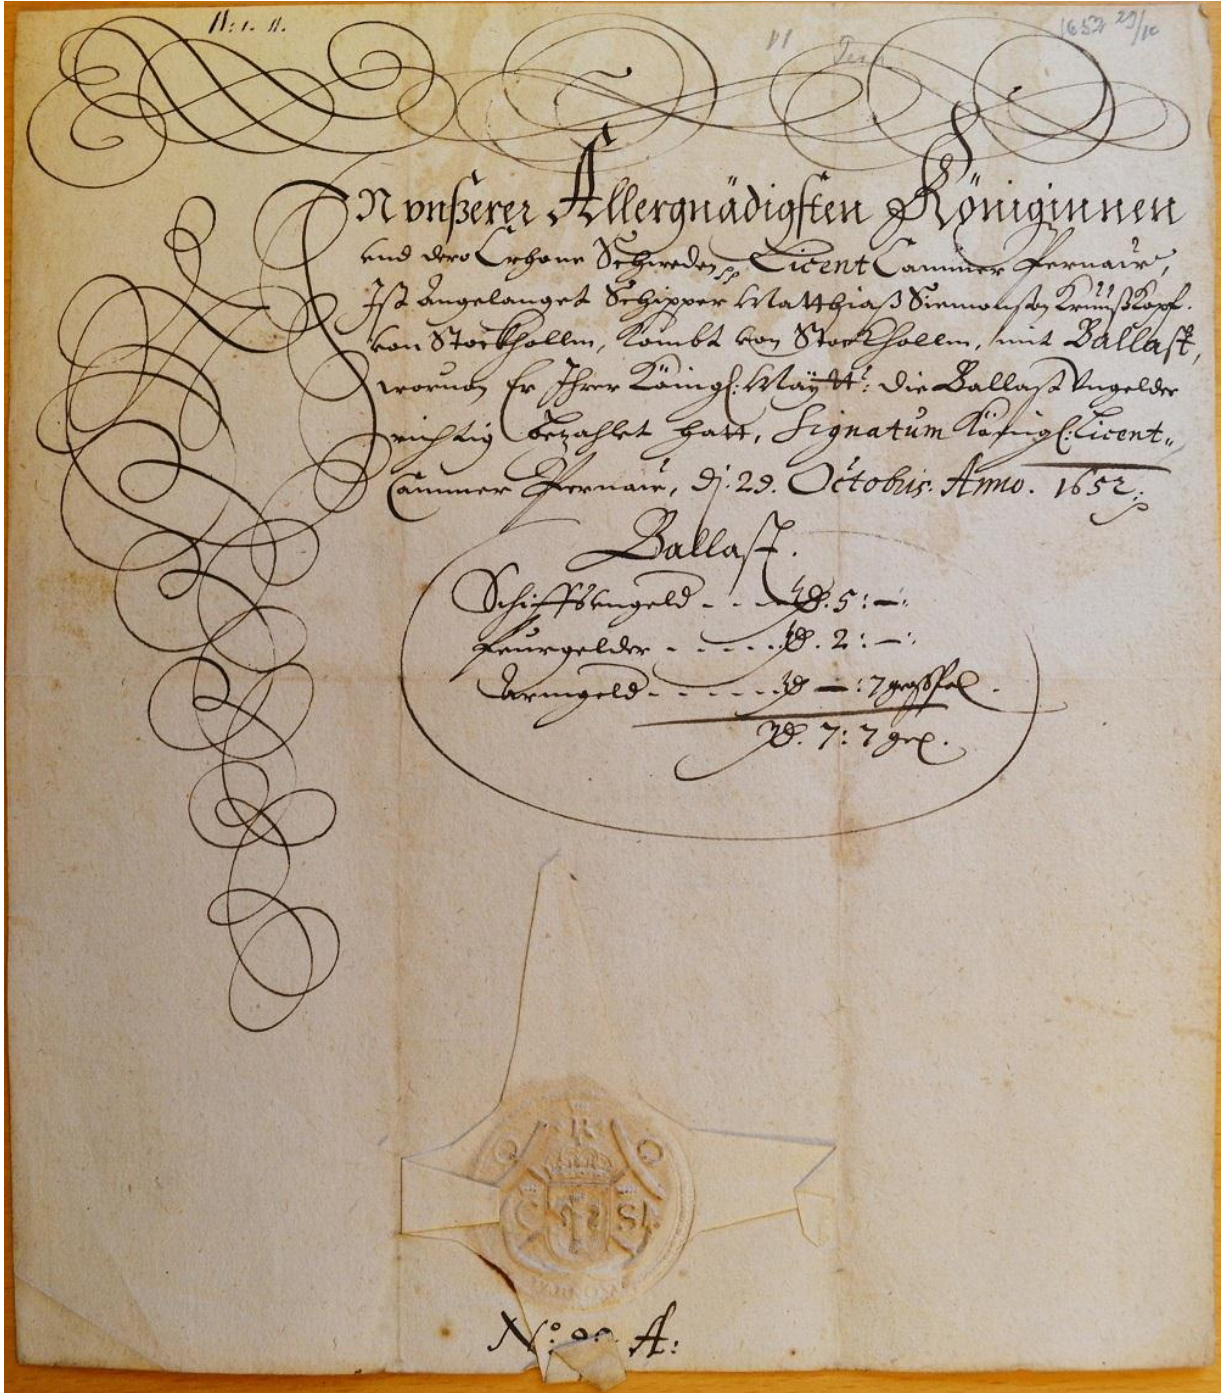 A: 1. A.
1652 29/10
IN vnßerer Allergnädigsten Königinnen
und dero Crohne Schweden Licent Cammer Pernaüw,
Ist Angelanget Schipper Matthiaß Siemonßon
von Stockhollm, kombt von Stockhollm, mit Ballast,
worvon Er Ihrer Königl: Maÿtt: die Ballast Vngelder
richtig bezahlet hatt, Signatum Königl: Licent-
Cammer Pernaüw, dj. 29. Octobris. Anno. 1652.
Ballast.
Schiffsvngeld - - - Rd. 5: —:
feurgelder - - - - Rd. 2: —:
Armgeld - - - - - Rd — : 7
Rd. 7: 7
R
C S
No: A: